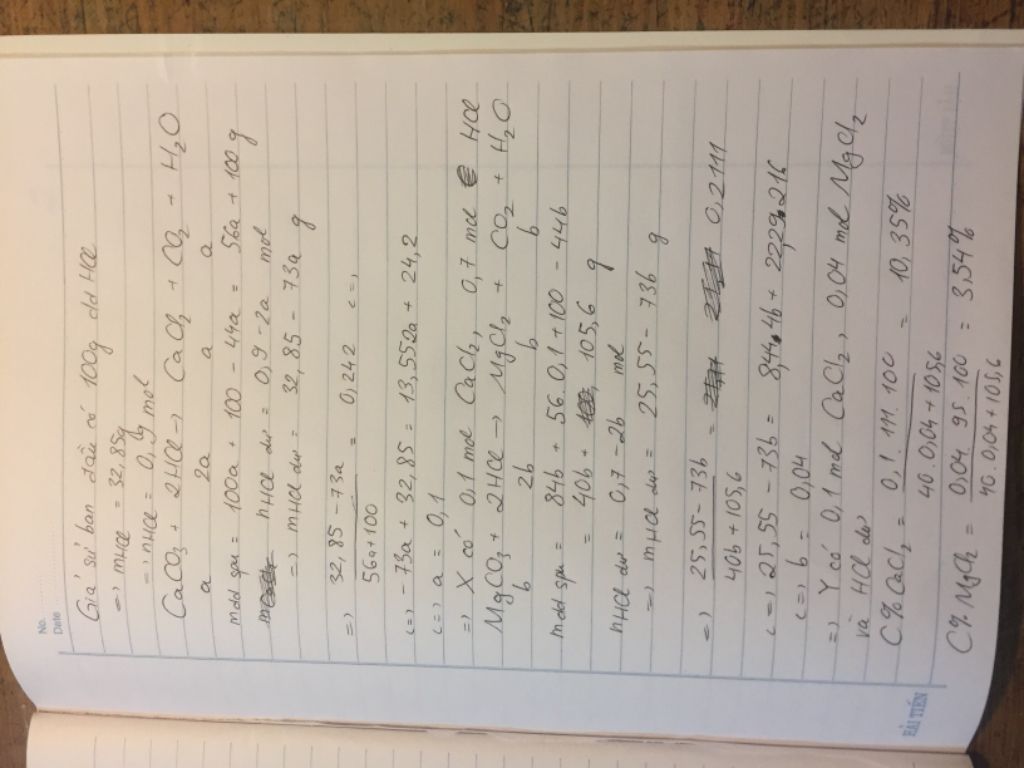 No.
Date
Giả sử ban đầu có 100g dd HCl
=> mHCl = 32,85g
=> nHCl = 0,9 mol
CaCO3 + 2HCl -> CaCl2 + CO2 + H2O
a 2a a a
mdd spư = 100a + 100 - 44a = 56a + 100 g
nHCl dư = 0,9 - 2a mol
=> mHCl dư = 32,85 - 73a g
=> 32,85 - 73a / 56a + 100 = 0,242 <=>
<=> -73a + 32,85 = 13,552a + 24,2
<=> a = 0,1
=> X có 0,1 mol CaCl2, 0,7 mol HCl
MgCO3 + 2HCl -> MgCl2 + CO2 + H2O
b 2b b b
mdd spư = 84b + 56.0,1 + 100 - 44b
= 40b + 105,6 g
nHCl dư = 0,7 - 2b mol
=> mHCl dư = 25,55 - 73b g
=> 25,55 - 73b / 40b + 105,6 = 0,2111
<=> 25,55 - 73b = 8,444b + 22,29216
<=> b = 0,04
=> Y có 0,1 mol CaCl2, 0,04 mol MgCl2
và HCl dư
C% CaCl2 = 0,1.111.100 / 40.0,04 + 105,6 = 10,35%
C% MgCl2 = 0,04.95.100 / 40.0,04 + 105,6 = 3,54%
HẢI TIẾN